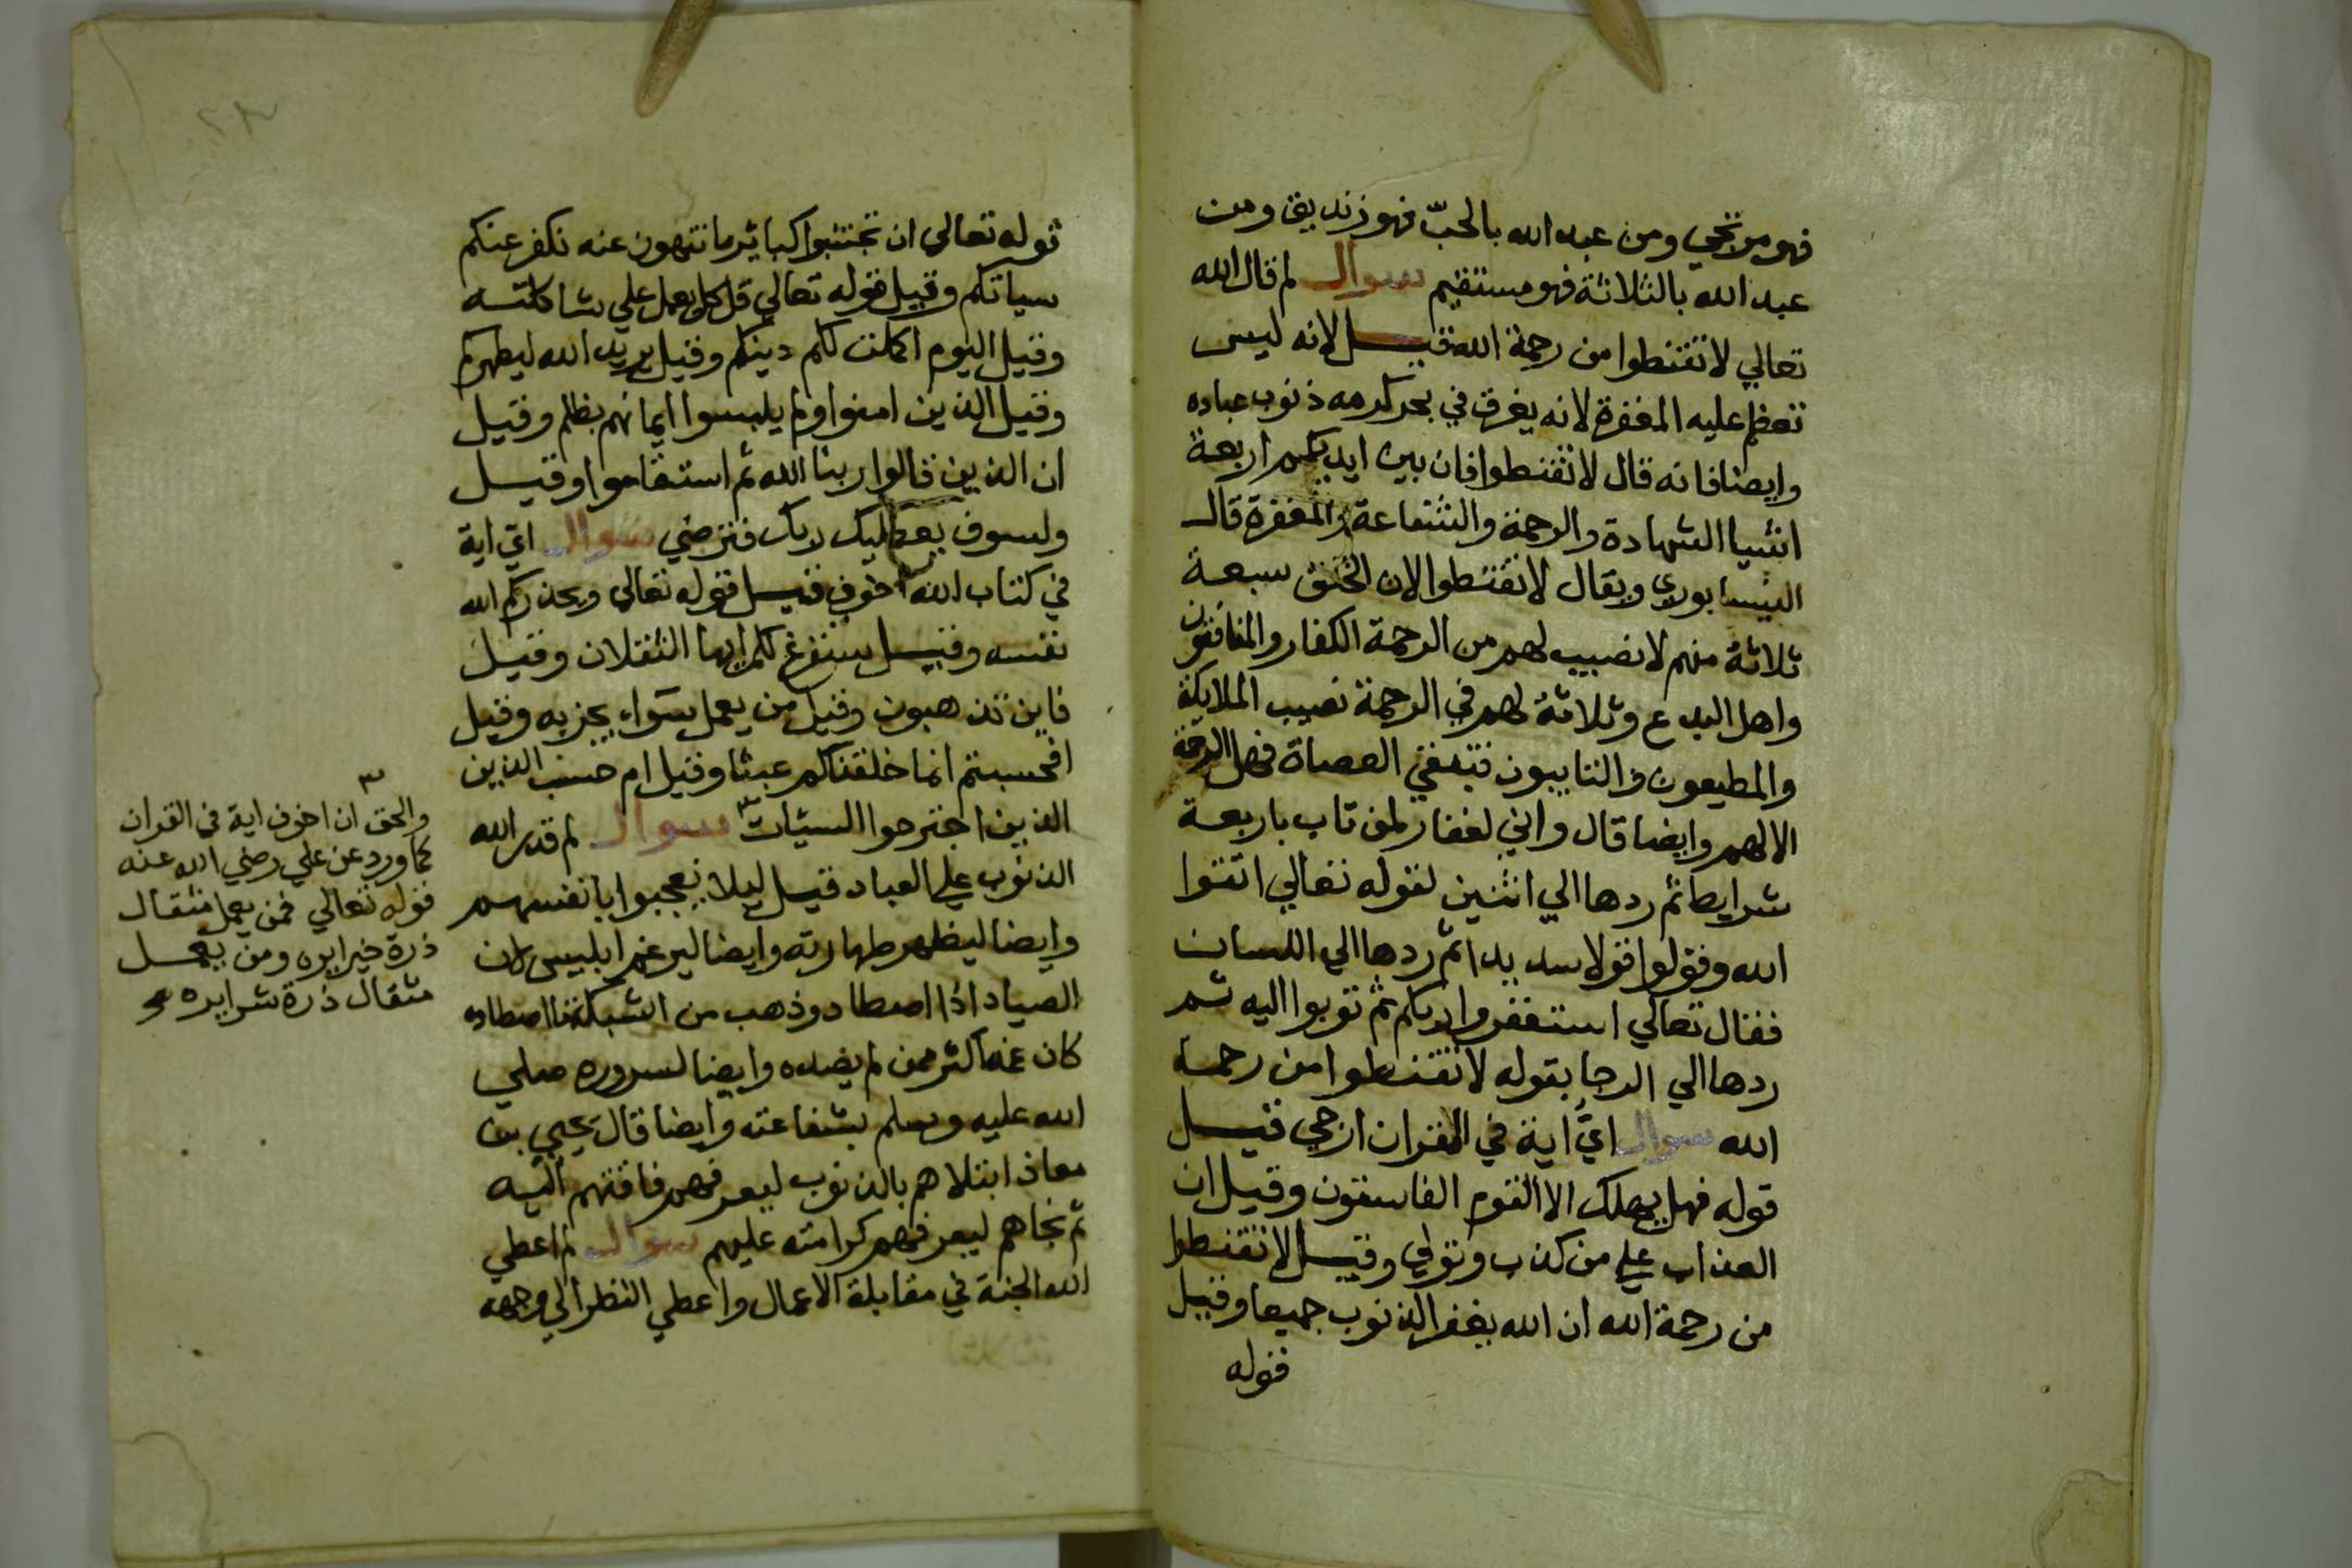 فهو مرتجي ومن عبد الله بالحبّ فهو زنديق ومن
عبد الله بالثلاثة فهو مستقيم سوال لم قال الله
تعالي لا تقنطوا من رحمة الله قيل لانه ليس
تعظم عليه المغفرة لانه يغرق في بحر كرمه ذنوب عباده
وايضا فانه قال لا تقنطوا فان بين ايديكم اربعة
اشيا الشهادة والرحمة والشفاعة والمغفرة قال
النيسابوري ويقال لا تقنطوا لان الخلق سبعة
ثلاثة منهم لا نصيب لهم من الرحمة الكفار والمنافقون
واهل البدع وثلاثة لهم في الرحمة نصيب الملايكة
والمطيعون والتايبون فبقي العصاة فهل الرحمة
الا لهم وايضا قال واني لغفار لمن تاب باربعة
شرايط ثم ردها الي اثنين لقوله تعالي اتقوا
الله وقولوا قولا سديدا ثم ردها الي اللسان
فقال تعالي استغفروا ربكم ثم توبوا اليه ثم
ردها الي الرجا بقوله لا تقنطوا من رحمة
الله سوال ايّ اية في القران ارجي قيل
قوله فهل يهلك الا القوم الفاسقون وقيل ان
العذاب علي من كذب وتولي وقيل لا تقنطوا
من رحمة الله ان الله يغفر الذنوب جميعا وقيل
قوله
قوله تعالي ان تجتنبوا كبائر ما تنهون عنه نكفر عنكم
سياتكم وقيل قوله تعالي قل كل يعمل علي شاكلته
وقيل اليوم اكملت لكم دينكم وقيل يريد الله ليطهركم
وقيل الذين امنوا ولم يلبسوا ايمانهم بظلم وقيل
ان الذين قالوا ربنا الله ثم استقاموا وقيل
ولسوف يعطيك ربك فترضي سوال اي اية
في كتاب الله اخوف قيل قوله تعالي ويحذركم الله
نفسه وقيل سنفرغ لكم ايها الثقلان وقيل
فاين تذهبون وقيل من يعمل سوء يجز به وقيل
افحسبتم انما خلقناكم عبثا وقيل ام حسب الذين
الذين اجترحوا السيئات ٣ سوال لم قدر الله
الذنوب علي العباد قيل ليلا يعجبوا بانفسهم
وايضا ليظهر طهارته وايضا ليرغم ابليس لان
الصياد اذا اصطاد وذهب من الشبكة ما اصطاده
كان غمه اكثر ممن لم يصده وايضا لسروره صلي
الله عليه وسلم بشفاعته وايضا قال يحيي بن
معاذ ابتلاهم بالذنوب ليعرفهم فاقتهم اليه
ثم نجاهم ليعرفهم كرامته عليهم سوال لم اعطي
الله الجنة في مقابلة الاعمال واعطي النظر الي وجهه
٣
والحق ان اخوف اية في القران
كما ورد عن علي رضي الله عنه
قوله تعالي فمن يعمل مثقال
ذرة خيرا يره ومن يعمل
مثقال ذرة شرا يره